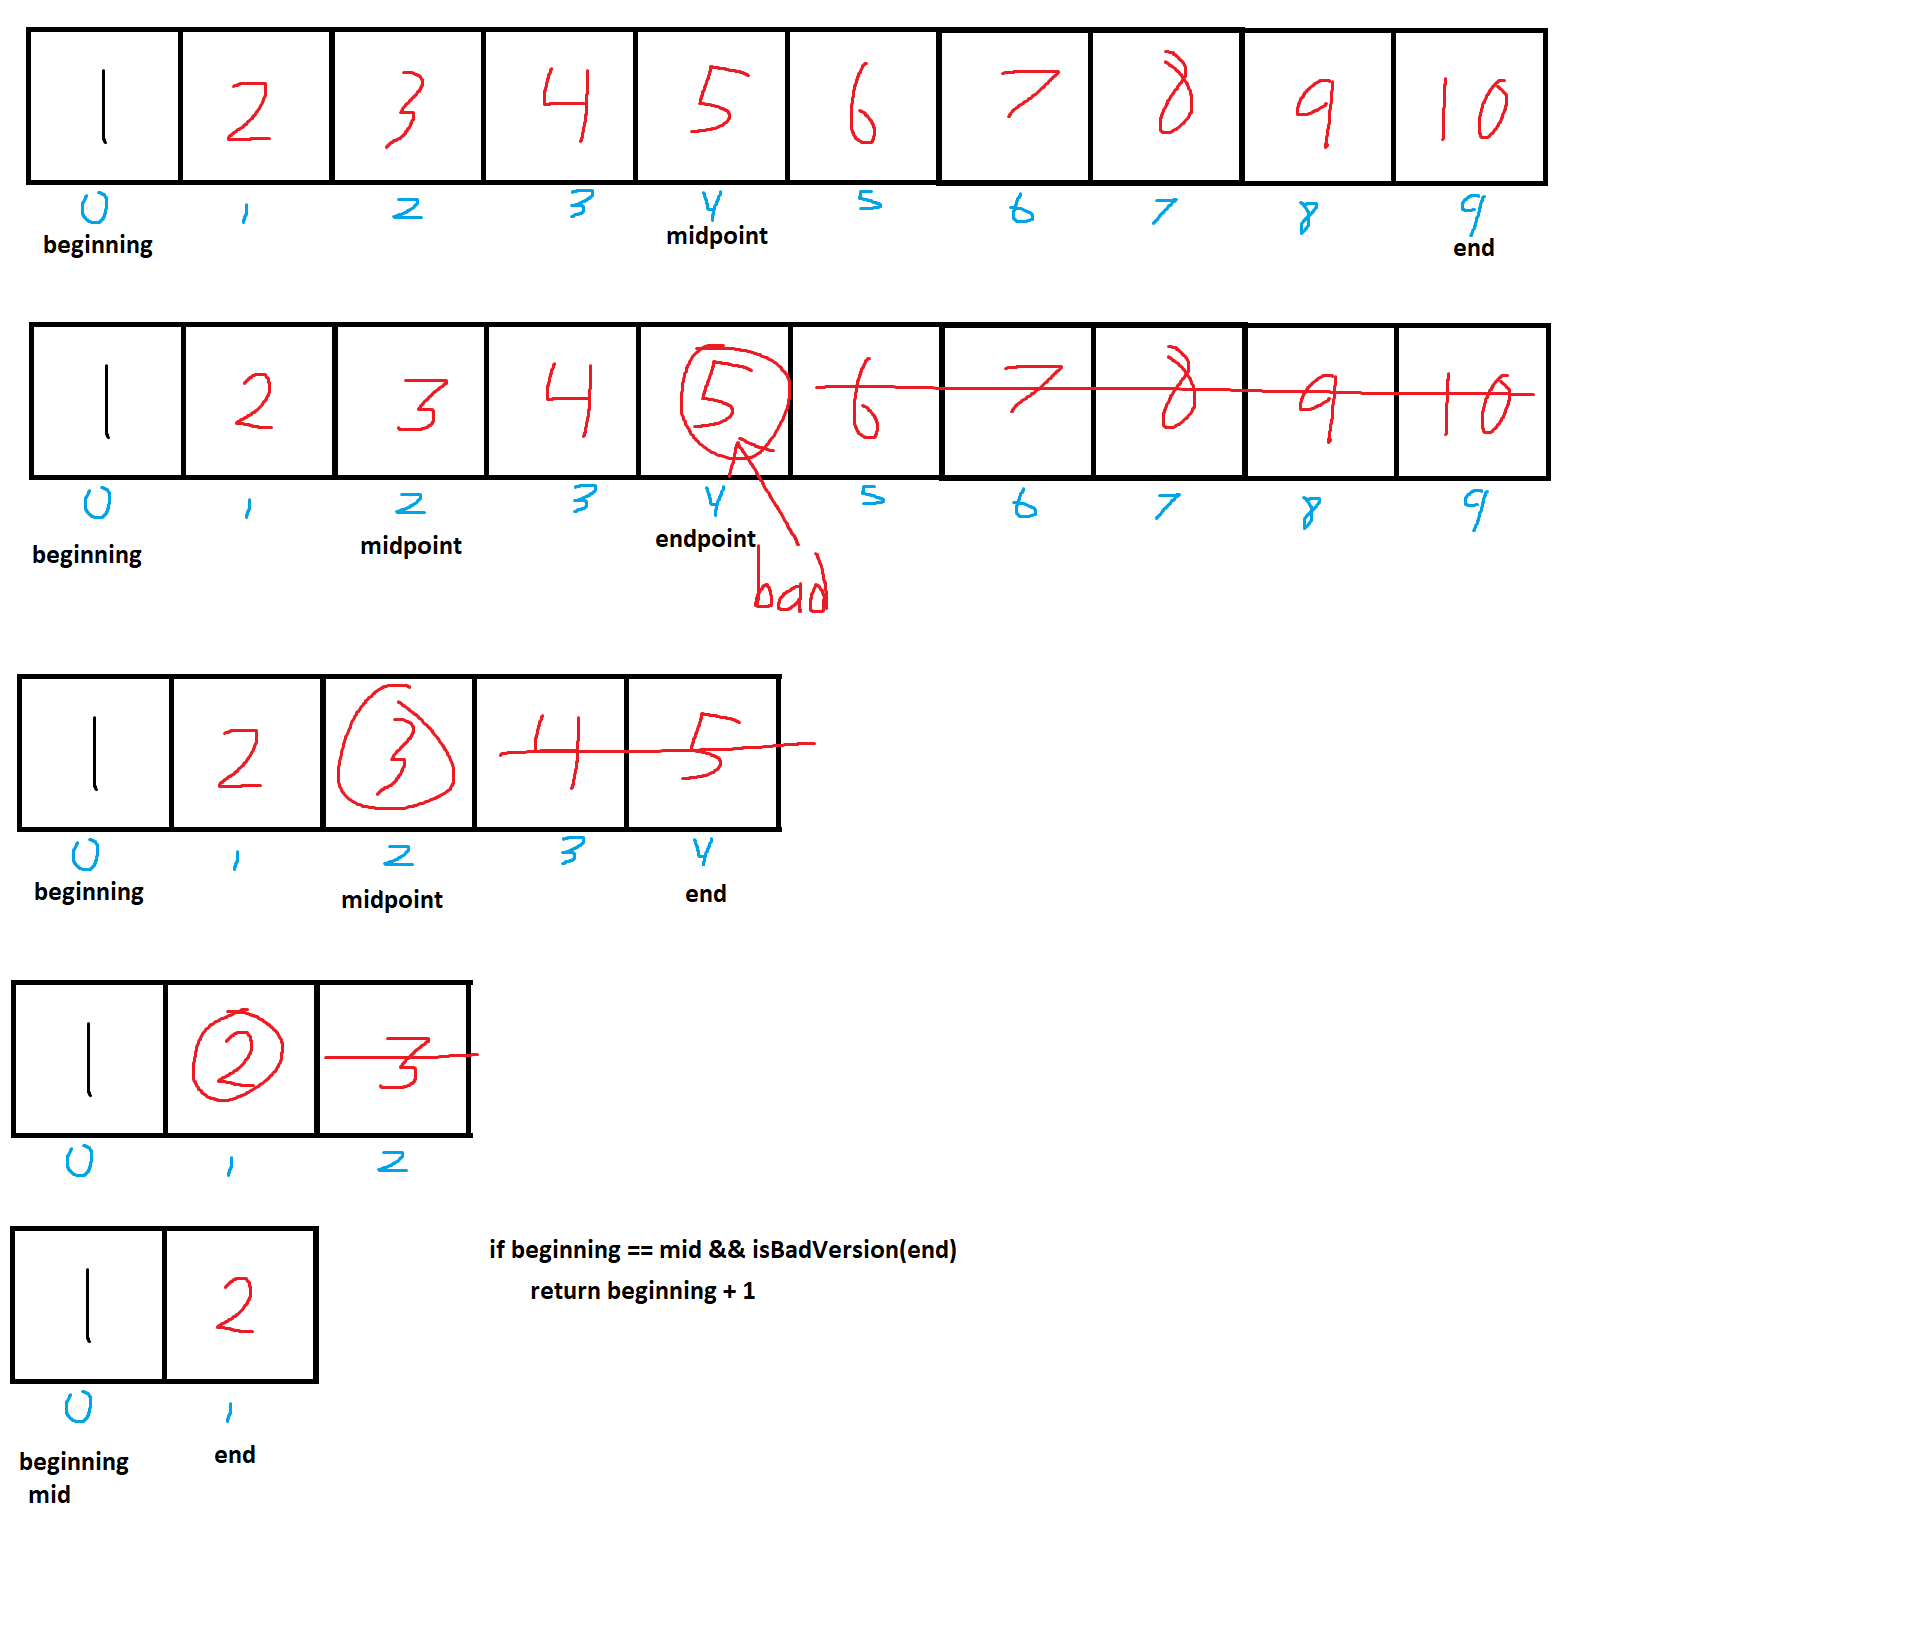 1 2 3 4 5 6 7 8 9 10
0 1 2 3 4 5 6 7 8 9
beginning midpoint end
1 2 3 4 5 6 7 8 9 10
0 1 2 3 4 5 6 7 8 9
beginning midpoint endpoint
bad
1 2 3 4 5
0 1 2 3 4
beginning midpoint end
1 2 3
0 1 2
1 2
if beginning == mid && isBadVersion(end)
return beginning + 1
0 1
beginning end
mid